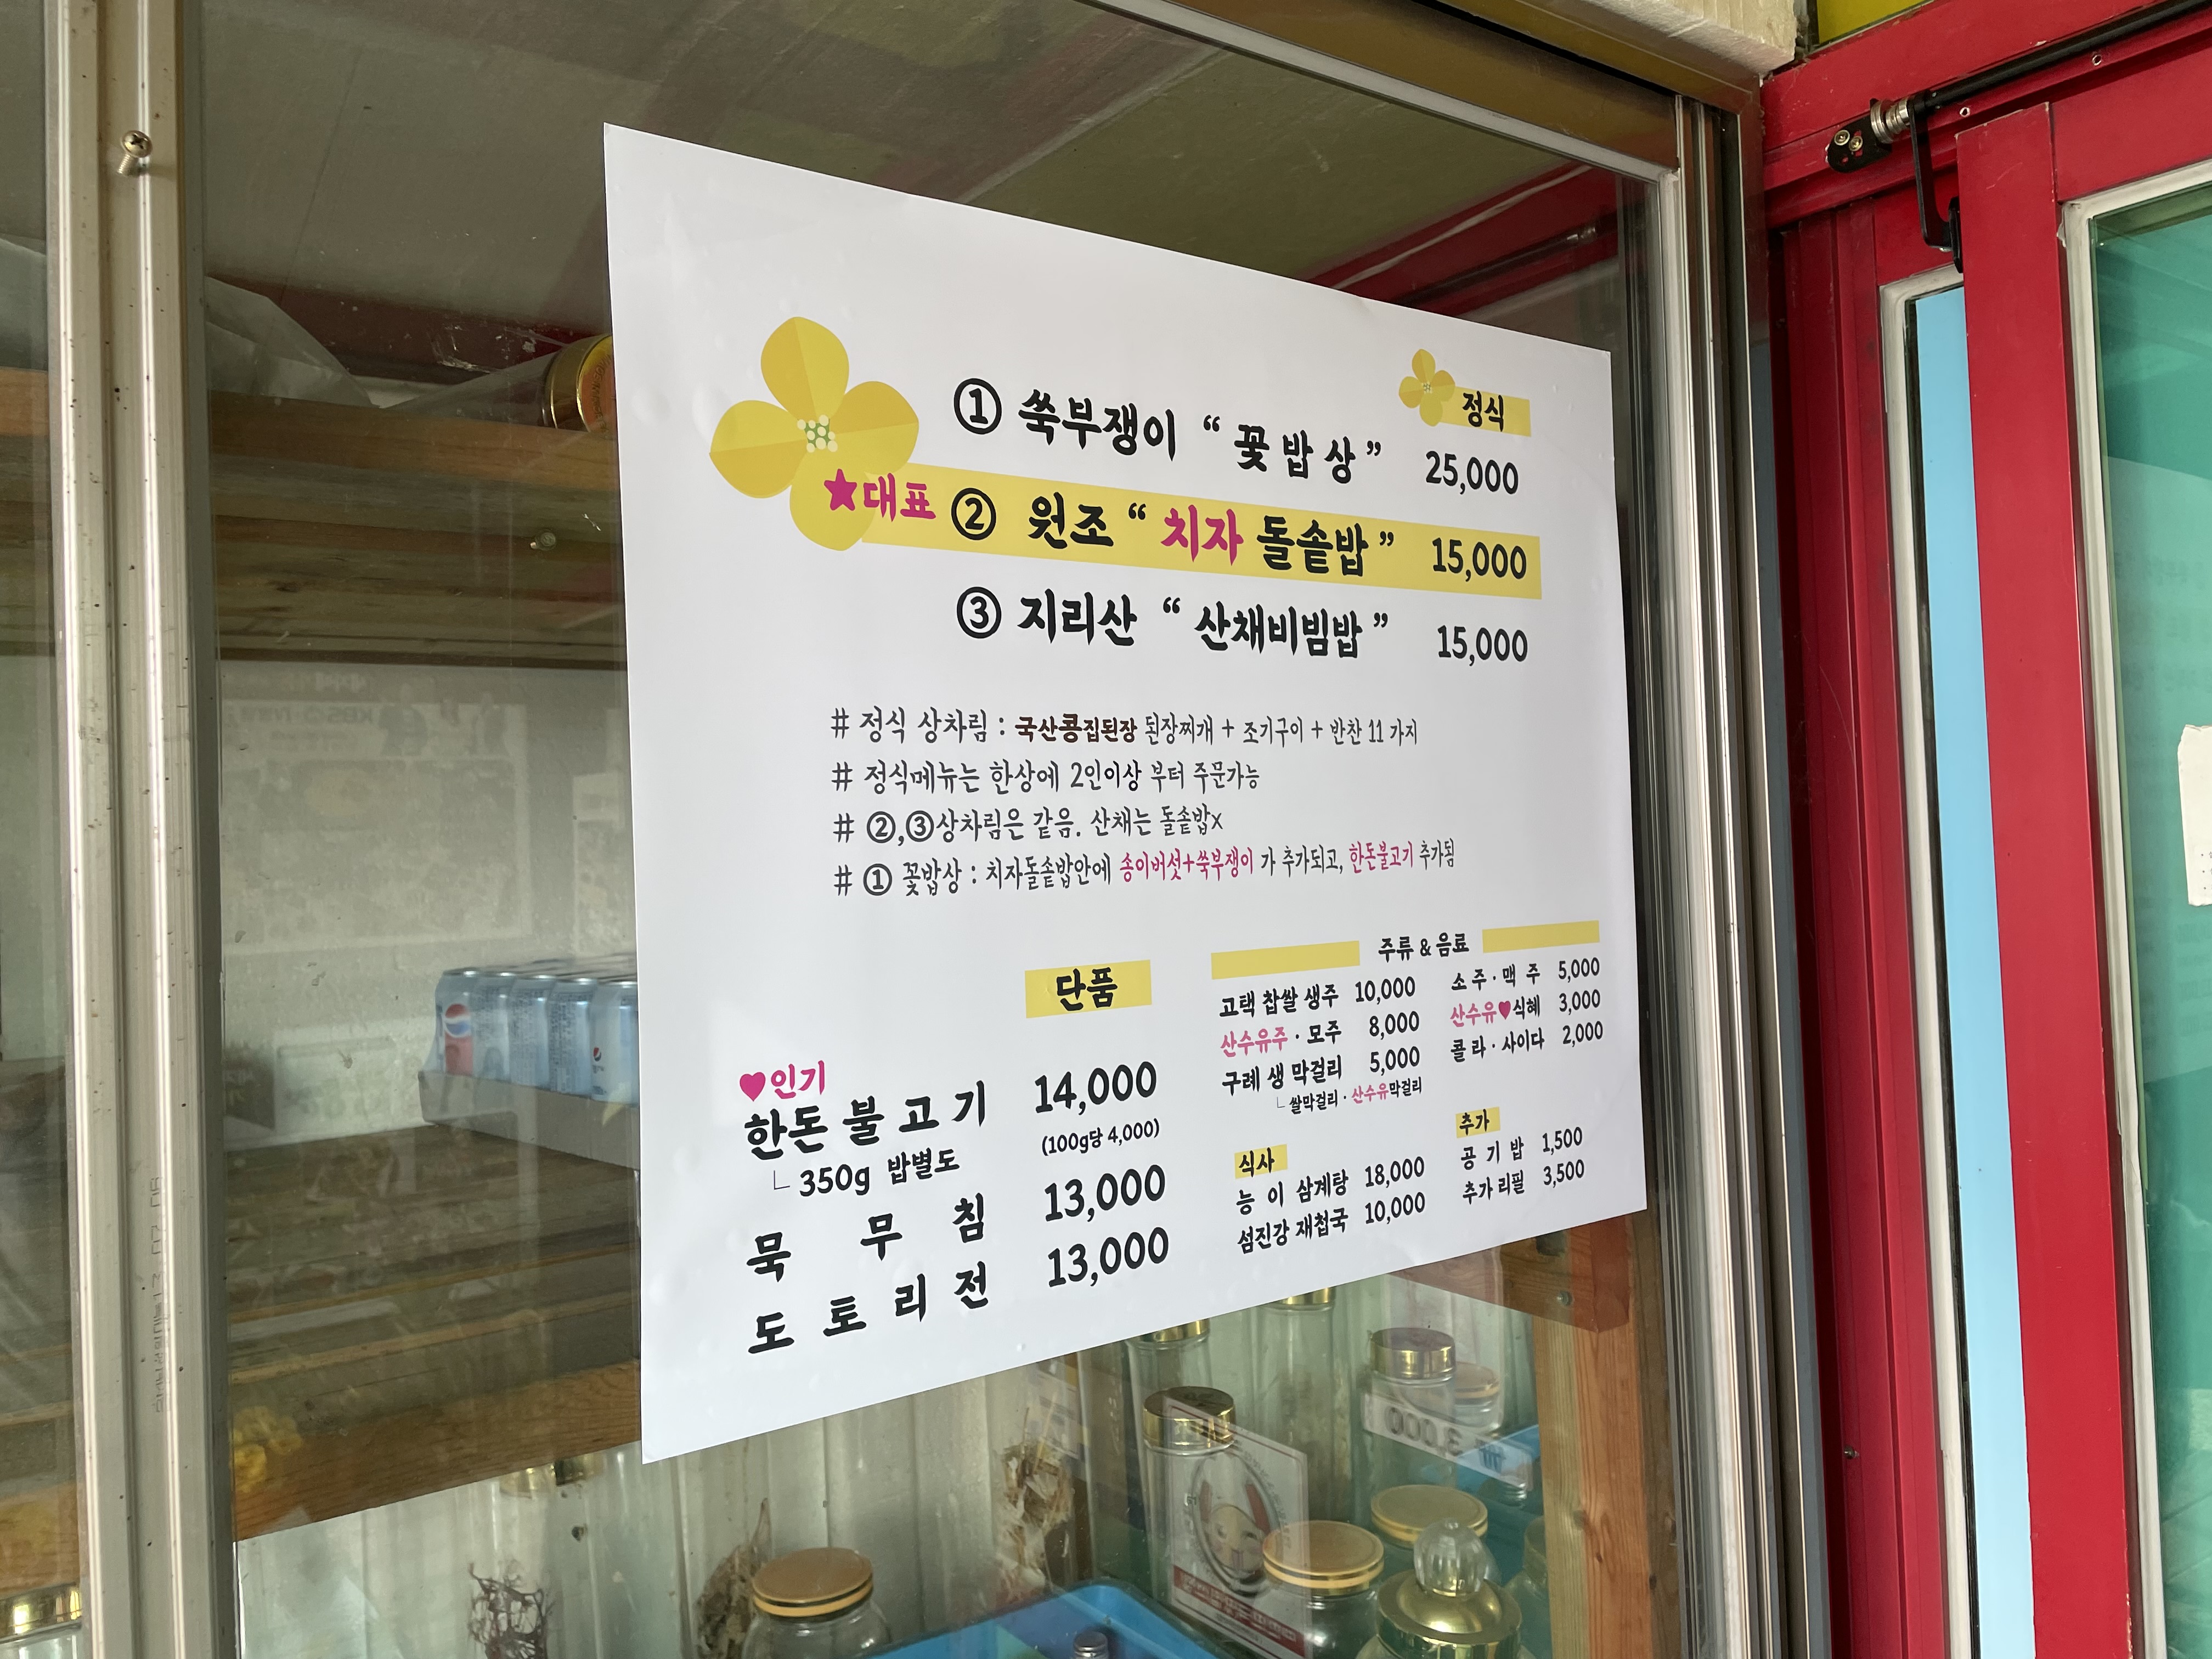 정식
① 쑥부쟁이 “ 꽃 밥 상 ” 25,000
★대표 ② 원조 “ 치자 돌솥밥 ” 15,000
③ 지리산 “ 산채비빔밥 ” 15,000
# 정식 상차림 : 국산콩집된장 된장찌개 + 조기구이 + 반찬 11 가지
# 정식메뉴는 한상에 2인이상 부터 주문가능
# ②,③상차림은 같음. 산채는 돌솥밥x
# ① 꽃밥상 : 치자돌솥밥안에 송이버섯+쑥부쟁이 가 추가되고, 한돈불고기 추가됨
단품
♥인기
한돈 불 고 기 14,000
(100g당 4,000)
└ 350g 밥별도
묵 무 침 13,000
도 토 리 전 13,000
주류 & 음료
고택 찹쌀 생주 10,000
산수유주 · 모주 8,000
구례 생 막걸리 5,000
└ 쌀막걸리 · 산수유막걸리
소 주 · 맥 주 5,000
산수유♥식혜 3,000
콜 라 · 사이다 2,000
식사
능 이 삼계탕 18,000
섬진강 재첩국 10,000
추가
공 기 밥 1,500
추가 리필 3,500
3,000